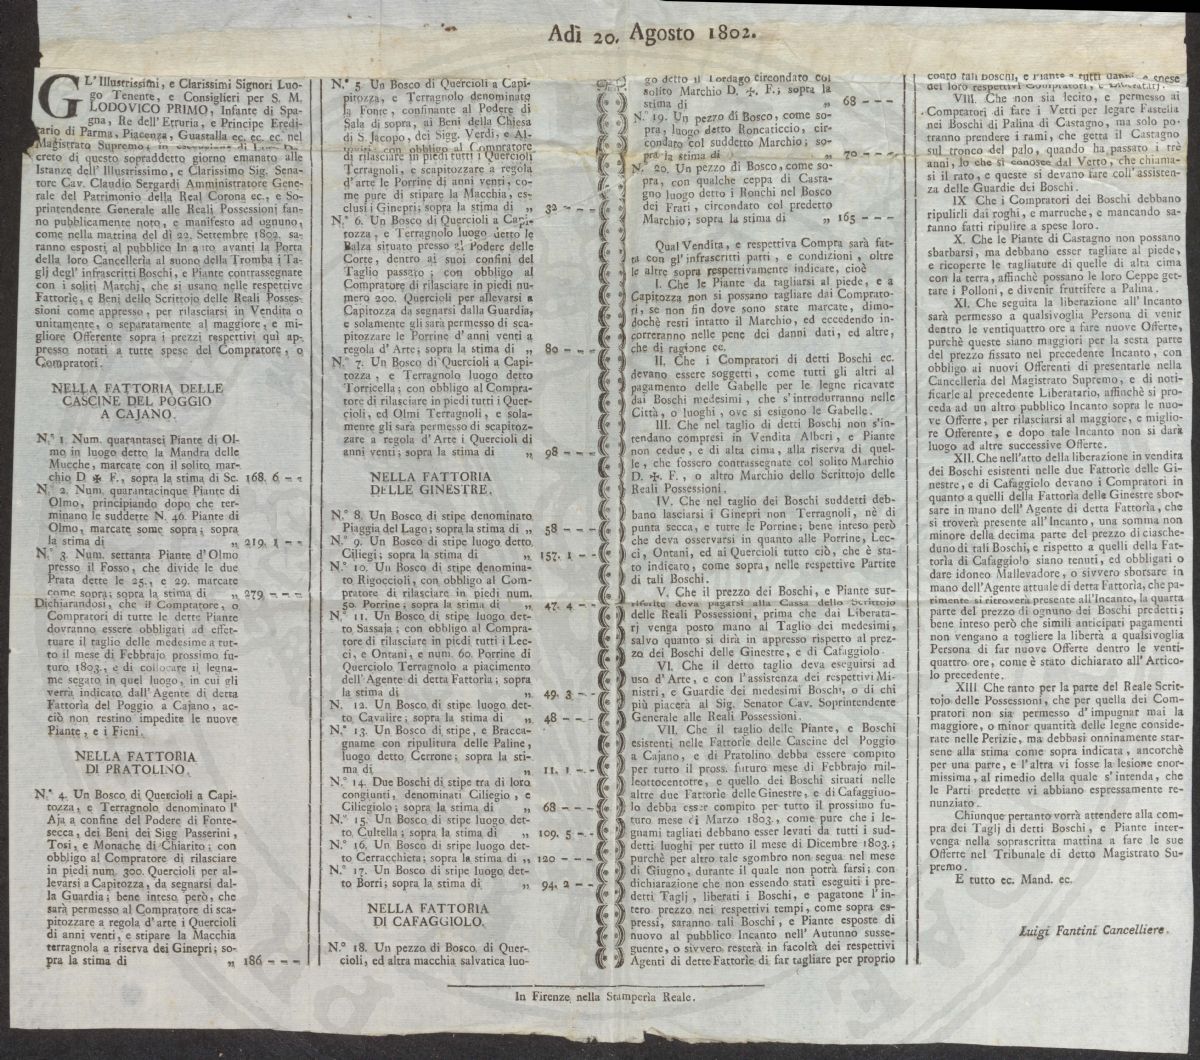 Adì 20. Agosto 1802.
GL'Illustrissimi, e Clarissimi Signori Luo-
go Tenente, e Consiglieri per S. M.
LODOVICO PRIMO, Infante di Spa-
gna, Re dell'Etruria, e Principe Eredi-
tario di Parma, Piacenza, Guastalla ec. ec. ec. nel
Magistrato Supremo; in esecuzione di
creto di questo sopraddetto giorno emanato alle
Istanze dell'Illustrissimo, e Clarissimo Sig. Sena-
tore Cav. Claudio Sergardi Amministratore Gene-
rale del Patrimonio della Real Corona ec., e So-
printendente Generale alle Reali Possessioni fan-
no pubblicamente noto, e manifesto ad ognuno,
come nella mattina del dì 22. Settembre 1802. sa-
ranno esposti al pubblico Incanto avanti la Porta
della loro Cancellerìa al suono della Tromba i Ta-
glj degl' infrascritti Boschi, e Piante contrassegnate
con i soliti Marchj, che si usano nelle respettive
Fattorìe, e Beni dello Scrittojo delle Reali Posses-
sioni come appresso, per rilasciarsi in Vendita o
unitamente, o separatamente al maggiore, e mi-
gliore Offerente sopra i prezzi respettivi quì ap-
presso notati a tutte spese del Compratore, o
Compratori.
NELLA FATTORIA DELLE
CASCINE DEL POGGIO
A CAJANO.
N.° 1. Num. quarantasei Piante di Ol-
mo in luogo detto la Mandra delle
Mucche, marcate con il solito mar-
chio D ✠ F., sopra la stima di Sc. 168. 6 - -
N.° 2. Num. quarantacinque Piante di
Olmo, principiando dopo che ter-
minano le suddette N. 46. Piante di
Olmo, marcate some sopra; sopra
la stima di „ 219. 1 - -
N.° 3. Num. settanta Piante d'Olmo
presso il Fosso, che divide le due
Prata dette le 25., e 29. marcate
come sopra; sopra la stima di „ 279 - - -
Dichiarandosi, che il Compratore, o
Compratori di tutte le dette Piante
dovranno essere obbligati ad effet-
tuare il taglio delle medesime a tut-
to il mese di Febbrajo prossimo fu-
turo 1803., e di collocare il legna-
me segato in quel luogo, in cui gli
verrà indicato dall'Agente di detta
Fattorìa del Poggio a Cajano, ac-
ciò non restino impedite le nuove
Piante, e i Fieni.
NELLA FATTORIA
DI PRATOLINO.
N.° 4. Un Bosco di Quercioli a Capi-
tozza, e Terragnolo denominato l'
Aja a confine del Podere di Fonte-
secca, dei Beni dei Sigg Passerini,
Tosi, e Monache di Chiarito; con
obbligo al Compratore di rilasciare
in piedi num. 300. Quercioli per al-
levarsi a Capitozza, da segnarsi dal-
la Guardia; bene inteso però, che
sarà permesso al Compratore di sca-
pitozzare a regola d'arte i Quercioli
di anni venti, e stipare la Macchia
terragnola a riserva dei Ginepri; so-
pra la stima di „ 186 - - -
N.° 5 Un Bosco di Quercioli a Capi-
pitozza, e Terragnolo denominato
la Fonte, confinante al Podere di
Sala di sopra, ai Beni della Chiesa
di S. Jacopo, dei Sigg. Verdi, e Al-
con obbligo al Compratore
di rilasciare in piedi tutti i Quercioli
Terragnoli, e scapitozzare a regola
d'arte le Porrine di anni venti, co-
me pure di stipare la Macchia, es-
clusi i Ginepri; sopra la stima di „ 32 - - -
N.° 6. Un Bosco di Quercioli a Capi-
tozza, e Terragnolo luogo detto le
Balza situato presso al Podere delle
Corte, dentro ai suoi confini del
Taglio passato; con obbligo al
Compratore di rilasciare in piedi nu-
mero 200. Quercioli per allevarsi a
Capitozza da segnarsi dalla Guardia,
e solamente gli sarà permesso di sca-
pitozzare le Porrine d'anni venti a
regola d'Arte, sopra la stima di „ 80 - - -
N.° 7. Un Bosco di Quercioli a Capi-
tozza, e Terragnolo luogo detto
Torricella; con obbligo al Compra-
tore di rilasciare in piedi tutti i Quer-
cioli, ed Olmi Terragnoli, e sola-
mente gli sarà permesso di scapitoz-
zare a regola d'Arte i Quercioli di
anni venti; sopra la stima di „ 98 - - -
NELLA FATTORIA
DELLE GINESTRE.
N.° 8. Un Bosco di stipe denominato
Piaggia del Lago; sopra la stima di „ 58 - - -
N.° 9. Un Bosco di stipe luogo detto
Ciliegi; sopra la stima di „ 157. 1 - -
N.° 10. Un Bosco di stipe denomina-
to Rigoccioli, con obbligo al Com-
pratore di rilasciare in piedi num.
50. Porrine; sopra la stima di „ 47. 4 - -
N.° 11. Un Bosco di stipe luogo det-
to Sassaja; con obbligo al Compra-
tore di rilasciare in piedi tutti i Lec-
ci, e Ontani, e num. 60. Porrine di
Querciolo Terragnolo a piacimento
dell'Agente di detta Fattorìa; sopra
la stima di „ 49. 3 - -
N. 12. Un Bosco di stipe luogo det-
to Cavalire; sopra la stima di „ 48 - - -
N.° 13. Un Bosco di stipe, e Bracca-
gname con ripulitura delle Paline,
luogo detto Cerrone; sopra la sti-
ma di „ 11. 1 - -
N.° 14. Due Boschi di stipe tra di loro
congiunti, denominati Ciliegio, e
Ciliegiolo; sopra la stima di „ 68 - - -
N.° 15. Un Bosco di stipe luogo det-
to Cultella; sopra la stima di „ 109. 5 - -
N.° 16. Un Bosco di stipe luogo det-
to Cerracchieta; sopra la stima di „ 120 - - -
N.° 17. Un Bosco di stipe luogo det-
to Borri; sopra la stima di „ 94. 2 - -
NELLA FATTORIA
DI CAFAGGIOLO.
N.° 18. Un pezzo di Bosco di Quer-
cioli, ed altra macchia salvatica luo-
go detto il Tordago circondato col
solito Marchio D. ✠. F.; sopra la
stima di „ 68 - - -
N.° 19. Un pezzo di Bosco, come so-
pra, luogo detto Roncaticcio, cir-
condato col suddetto Marchio; so-
pra la stima di „ 70 - - -
N.° 20. Un pezzo di Bosco, come so-
pra, con qualche ceppa di Casta-
gno luogo detto i Ronchi nel Bosco
dei Frati, circondato col predetto
Marchio; sopra la stima di „ 165 - - -
Qual Vendita, e respettiva Compra sarà fat-
ta con gl'infrascritti patti, e condizioni, oltre
le altre sopra respettivamente indicate, cioè
I. Che le Piante da tagliarsi al piede, e a
Capitozza non si possano tagliare dai Comprato-
ri, se non fin dove sono state marcate, dimo-
dochè resti intatto il Marchio, ed eccedendo in-
correranno nelle pene dei danni dati, ed altre,
che di ragione ec.
II. Che i Compratori di detti Boschi ec.
devano essere soggetti, come tutti gli altri al
pagamento delle Gabelle per le legne ricavate
dai Boschi medesimi, che s'introdurranno nelle
Città, o luoghi, ove si esigono le Gabelle.
III. Che nel taglio di detti Boschi non s'in-
tendano compresi in Vendita Alberi, e Piante
non cedue, e di alta cima, alla riserva di quel-
le, che fossero contrassegnate col solito Marchio
D. ✠. F., o altro Marchio dello Scrittojo delle
Reali Possessioni.
IV. Che nel taglio dei Boschi suddetti deb-
bano lasciarsi i Ginepri non Terragnoli, nè di
punta secca, e tutte le Porrine; bene inteso però
che deva osservarsi in quanto alle Porrine, Lec-
ci, Ontani, ed ai Quercioli tutto ciò, che è sta-
to indicato, come sopra, nelle respettive Partite
di tali Boschi.
V. Che il prezzo dei Boschi, e Piante sur-
riferite deva pagarsi alla Cassa dello Scrittojo
delle Reali Possessioni, prima che dai Liberata-
rj venga posto mano al Taglio dei medesimi,
salvo quanto si dirà in appresso rispetto al prez-
zo dei Boschi delle Ginestre, e di Cafaggiolo.
VI. Che il detto taglio deva eseguirsi ad
uso d'Arte, e con l'assistenza dei respettivi Mi-
nistri, e Guardie dei medesimi Boschi, o di chi
più piacerà al Sig. Senator Cav. Soprintendente
Generale alle Reali Possessioni.
VII. Che il taglio delle Piante, e Boschi
esistenti nelle Fattorìe delle Cascine del Poggio
a Cajano, e di Pratolino debba essere compito
per tutto il pross. futuro mese di Febbrajo mil-
leottocentotre, e quello dei Boschi situati nelle
altre due Fattorìe delle Ginestre, e di Cafaggiuo-
lo debba esser compito per tutto il prossimo fu-
turo mese di Marzo 1803., come pure che i le-
gnami tagliati debbano esser levati da tutti i sud-
detti luoghi per tutto il mese di Dicembre 1803.;
purchè per altro tale sgombro non segua nel mese
di Giugno, durante il quale non potrà farsi; con
dichiarazione che non essendo stati eseguiti i pre-
detti Taglj, liberati i Boschi, e pagatone l'in-
tero prezzo nei respettivi tempi, come sopra es-
pressi, saranno tali Boschi, e Piante esposte di
nuovo al pubblico Incanto nell'Autunno susse-
guente, o sivvero resterà in facoltà dei respettivi
Agenti di dette Fattorìe di far tagliare per proprio
conto tali Boschi, e Piante a tutti danni, e spese
dei loro respettivi Compratori, e Liberatarj.
VIII. Che non sia lecito, e permesso ai
Compratori di fare i Vetti per legare Fastella
nei Boschi di Palina di Castagno, ma solo po-
tranno prendere i rami, che getta il Castagno
sul tronco del palo, quando ha passato i trè
anni, lo che si conosce dal Vetto, che chiama-
si il rato, e queste si devano fare coll'assisten-
za delle Guardie dei Boschi.
IX Che i Compratori dei Boschi debbano
ripulirli dai roghi, e marruche, e mancando sa-
ranno fatti ripulire a spese loro.
X. Che le Piante di Castagno non possano
sbarbarsi, ma debbano esser tagliate al piede,
e ricoperte le tagliature di quelle di alta cima
con la terra, affinchè possano le loro Ceppe get-
tare i Polloni, e divenir fruttifere a Palina.
XI. Che seguita la liberazione all'Incanto
sarà permesso a qualsivoglia Persona di venir
dentro le ventiquattro ore a fare nuove Offerte,
purchè queste siano maggiori per la sesta parte
del prezzo fissato nel precedente Incanto, con
obbligo ai nuovi Offerenti di presentarle nella
Cancellerìa del Magistrato Supremo, e di noti-
ficarle al precedente Liberatario, affinchè si pro-
ceda ad un altro pubblico Incanto sopra le nuo-
ve Offerte, per rilasciarsi al maggiore, e miglio-
re Offerente, e dopo tale Incanto non si darà
luogo ad altre successive Offerte.
XII. Che nell'atto della liberazione in vendita
dei Boschi esistenti nelle due Fattorìe delle Gi-
nestre, e di Cafaggiolo devano i Compratori in
quanto a quelli della Fattorìa delle Ginestre sbor-
sare in mano dell'Agente di detta Fattorìa, che
si troverà presente all'Incanto, una somma non
minore della decima parte del prezzo di ciasche-
duno di tali Boschi, e rispetto a quelli della Fat-
torìa di Cafaggiolo siano tenuti, ed obbligati o
dare idoneo Mallevadore, o sivvero sborsare in
mano dell'Agente attuale di detta Fattorìa, che pa-
rimente si ritroverà presente all'Incanto, la quarta
parte del prezzo di ognuno dei Boschi predetti;
bene inteso però che simili anticipati pagamenti
non vengano a togliere la libertà a qualsivoglia
Persona di far nuove Offerte dentro le venti-
quattro ore, come è stato dichiarato all'Artico-
lo precedente.
XIII Che tanto per la parte del Reale Scrit-
tojo delle Possessioni, che per quella dei Com-
pratori non sia permesso d'impugnar mai la
maggiore, o minor quantità delle legne conside-
rate nelle Perizie, ma debbasi onninamente star-
sene alla stima come sopra indicata, ancorchè
per una parte, e l'altra vi fosse la lesione enor-
missima, al rimedio della quale s'intenda, che
le Parti predette vi abbiano espressamente re-
nunziato.
Chiunque pertanto vorrà attendere alla com-
pra dei Taglj di detti Boschi, e Piante inter-
venga nella soprascritta mattina a fare le sue
Offerte nel Tribunale di detto Magistrato Su-
premo.
E tutto ec. Mand. ec.
Luigi Fantini Cancelliere.
In Firenze, nella Stamperìa Reale.